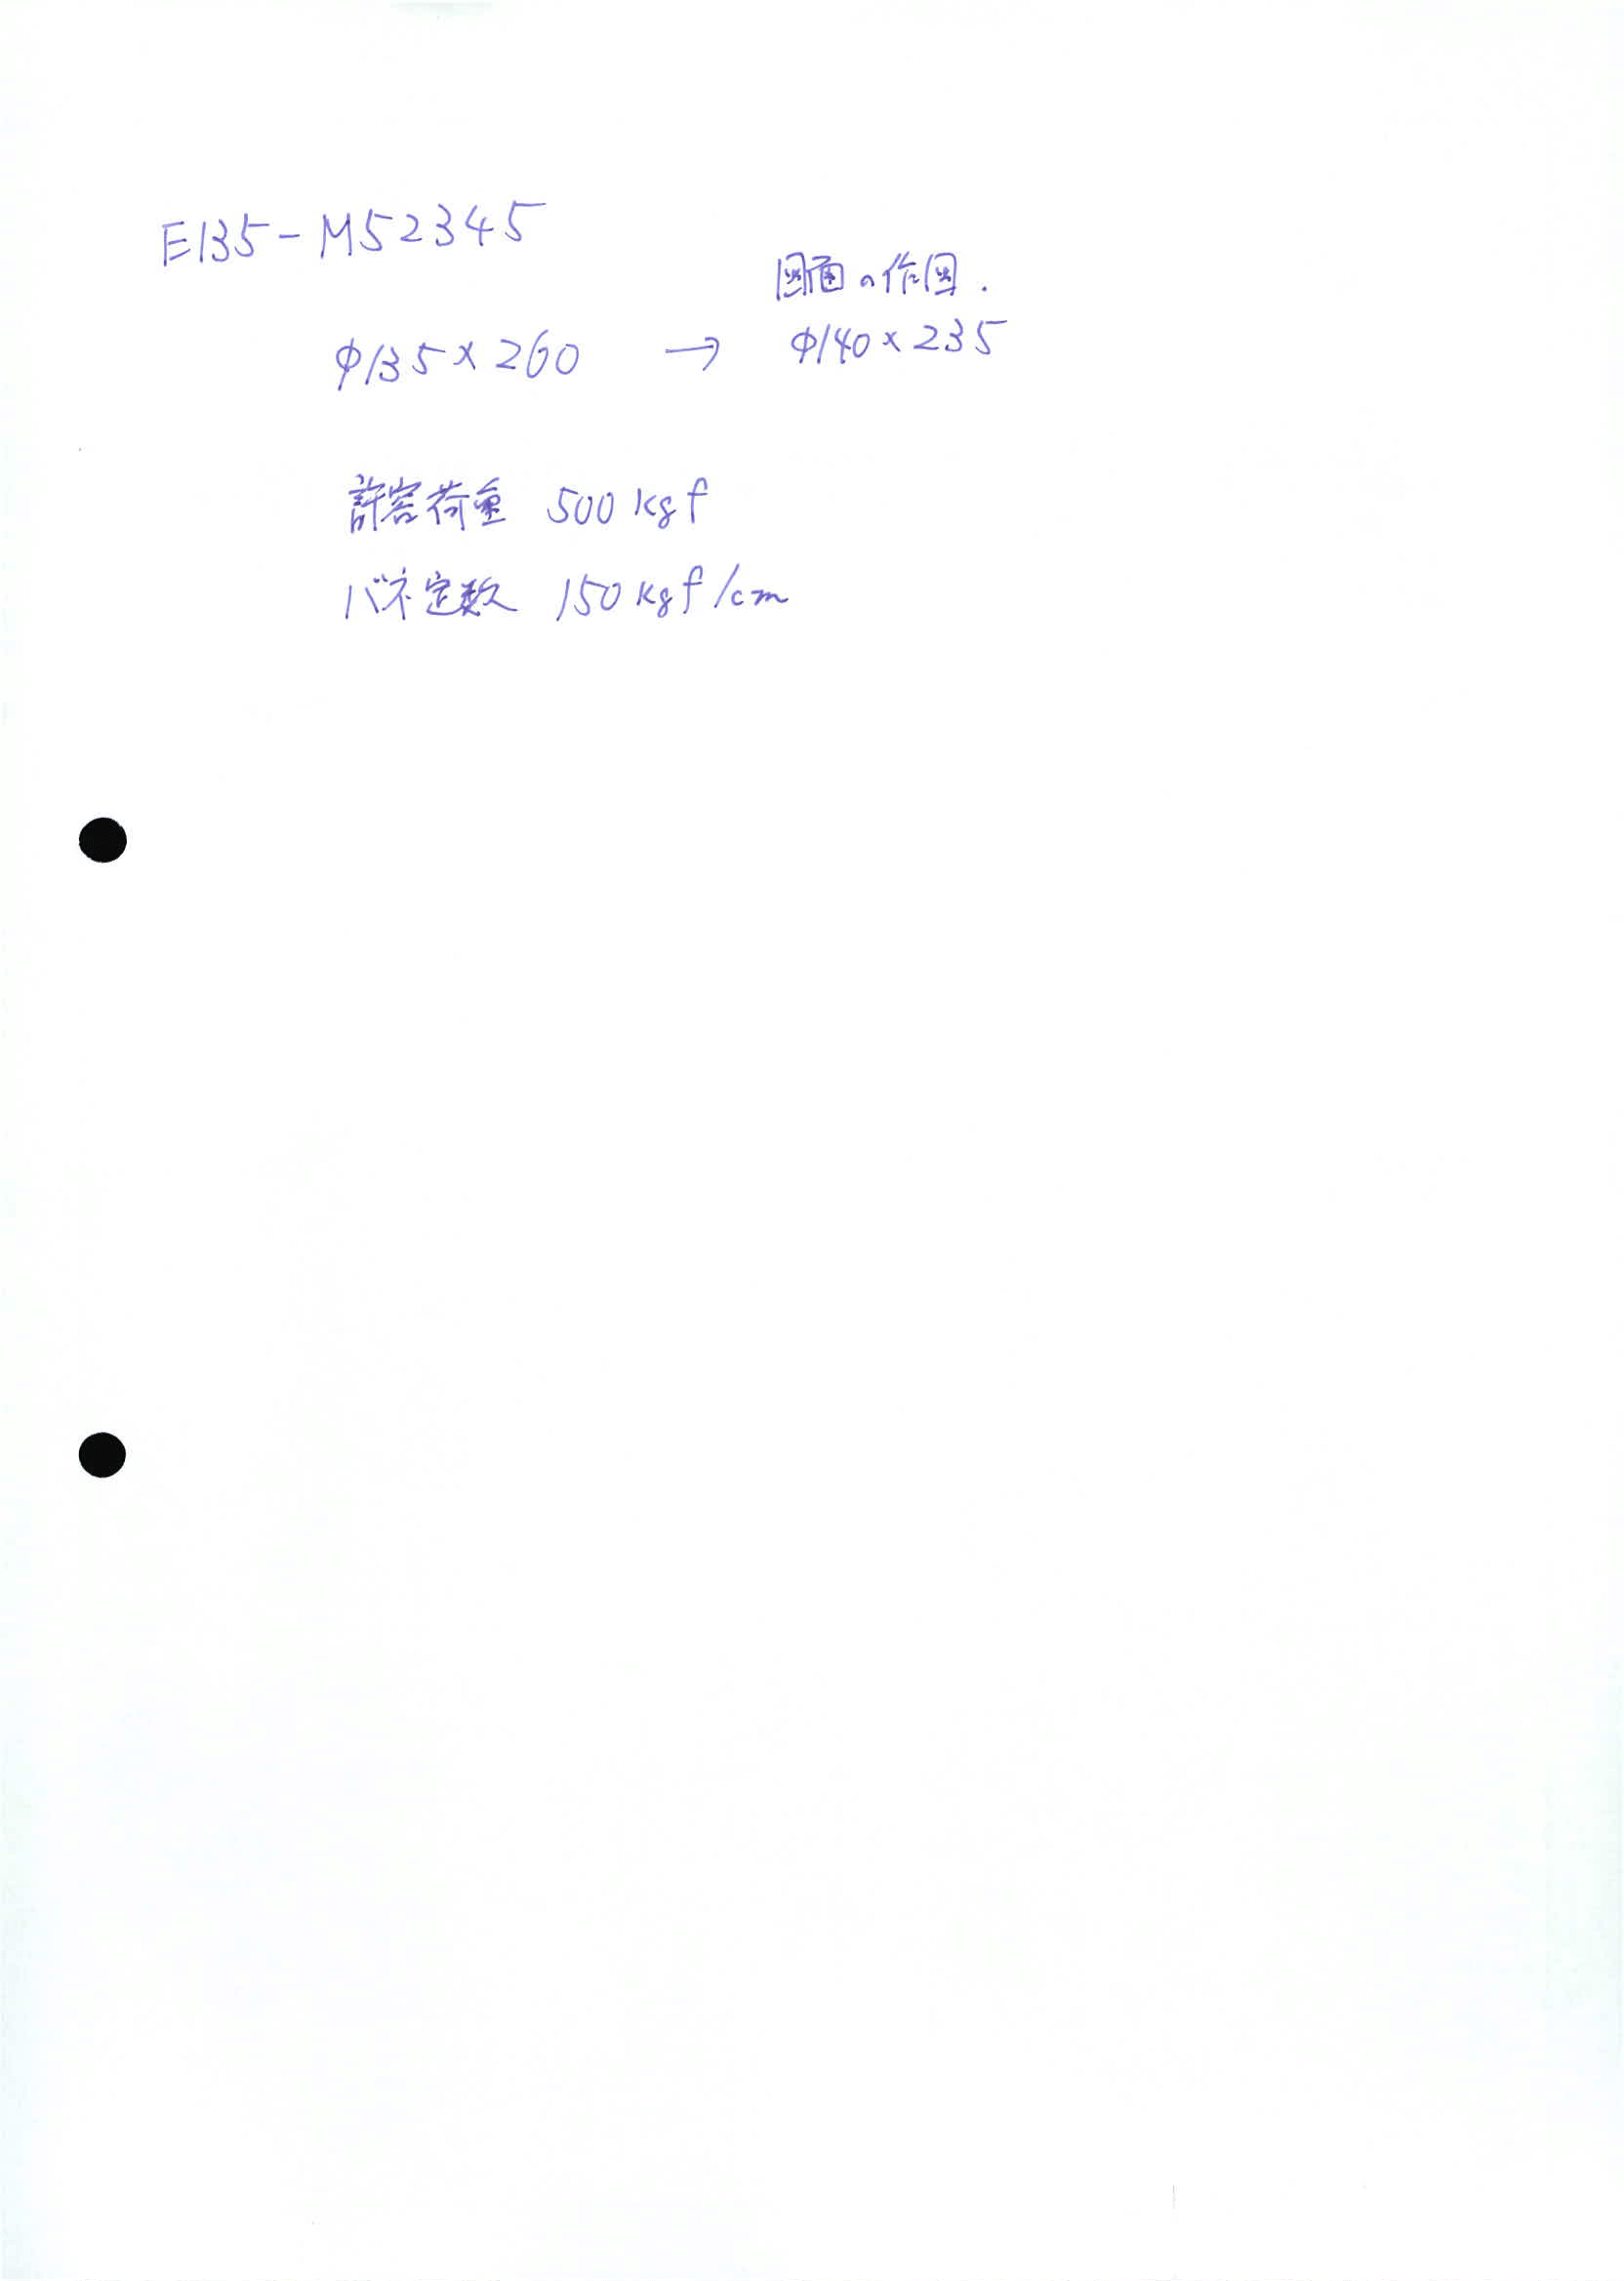 E135-M52345
図面の作図.
φ135×260 → φ140×235
許容荷重 500kgf
バネ定数 150kgf/cm